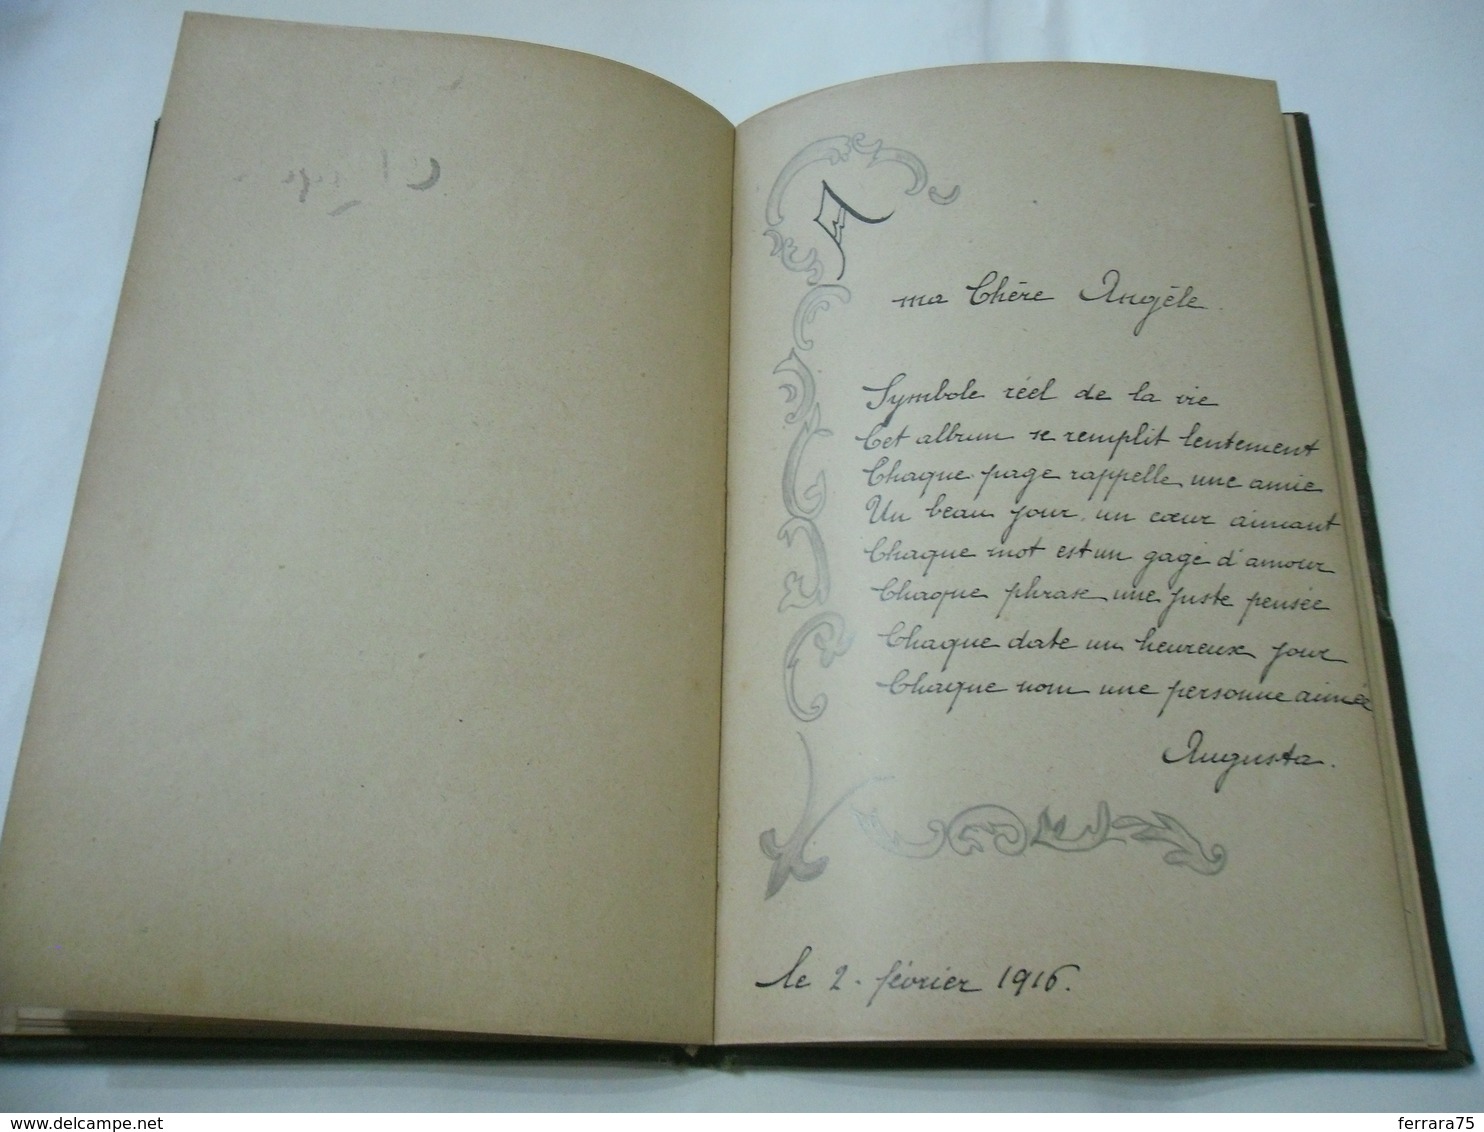 A
ma Chère Angèle.
Symbole réel de la vie
Cet album se remplit lentement
Chaque page rappelle une amie
Un beau jour, un cœur aimant
Chaque mot est un gage d'amour
Chaque phrase une juste pensée
Chaque date un heureux jour
Chaque nom une personne aimée
Augusta.
le 2. février 1916.
www.delcampe.net
ferrara75